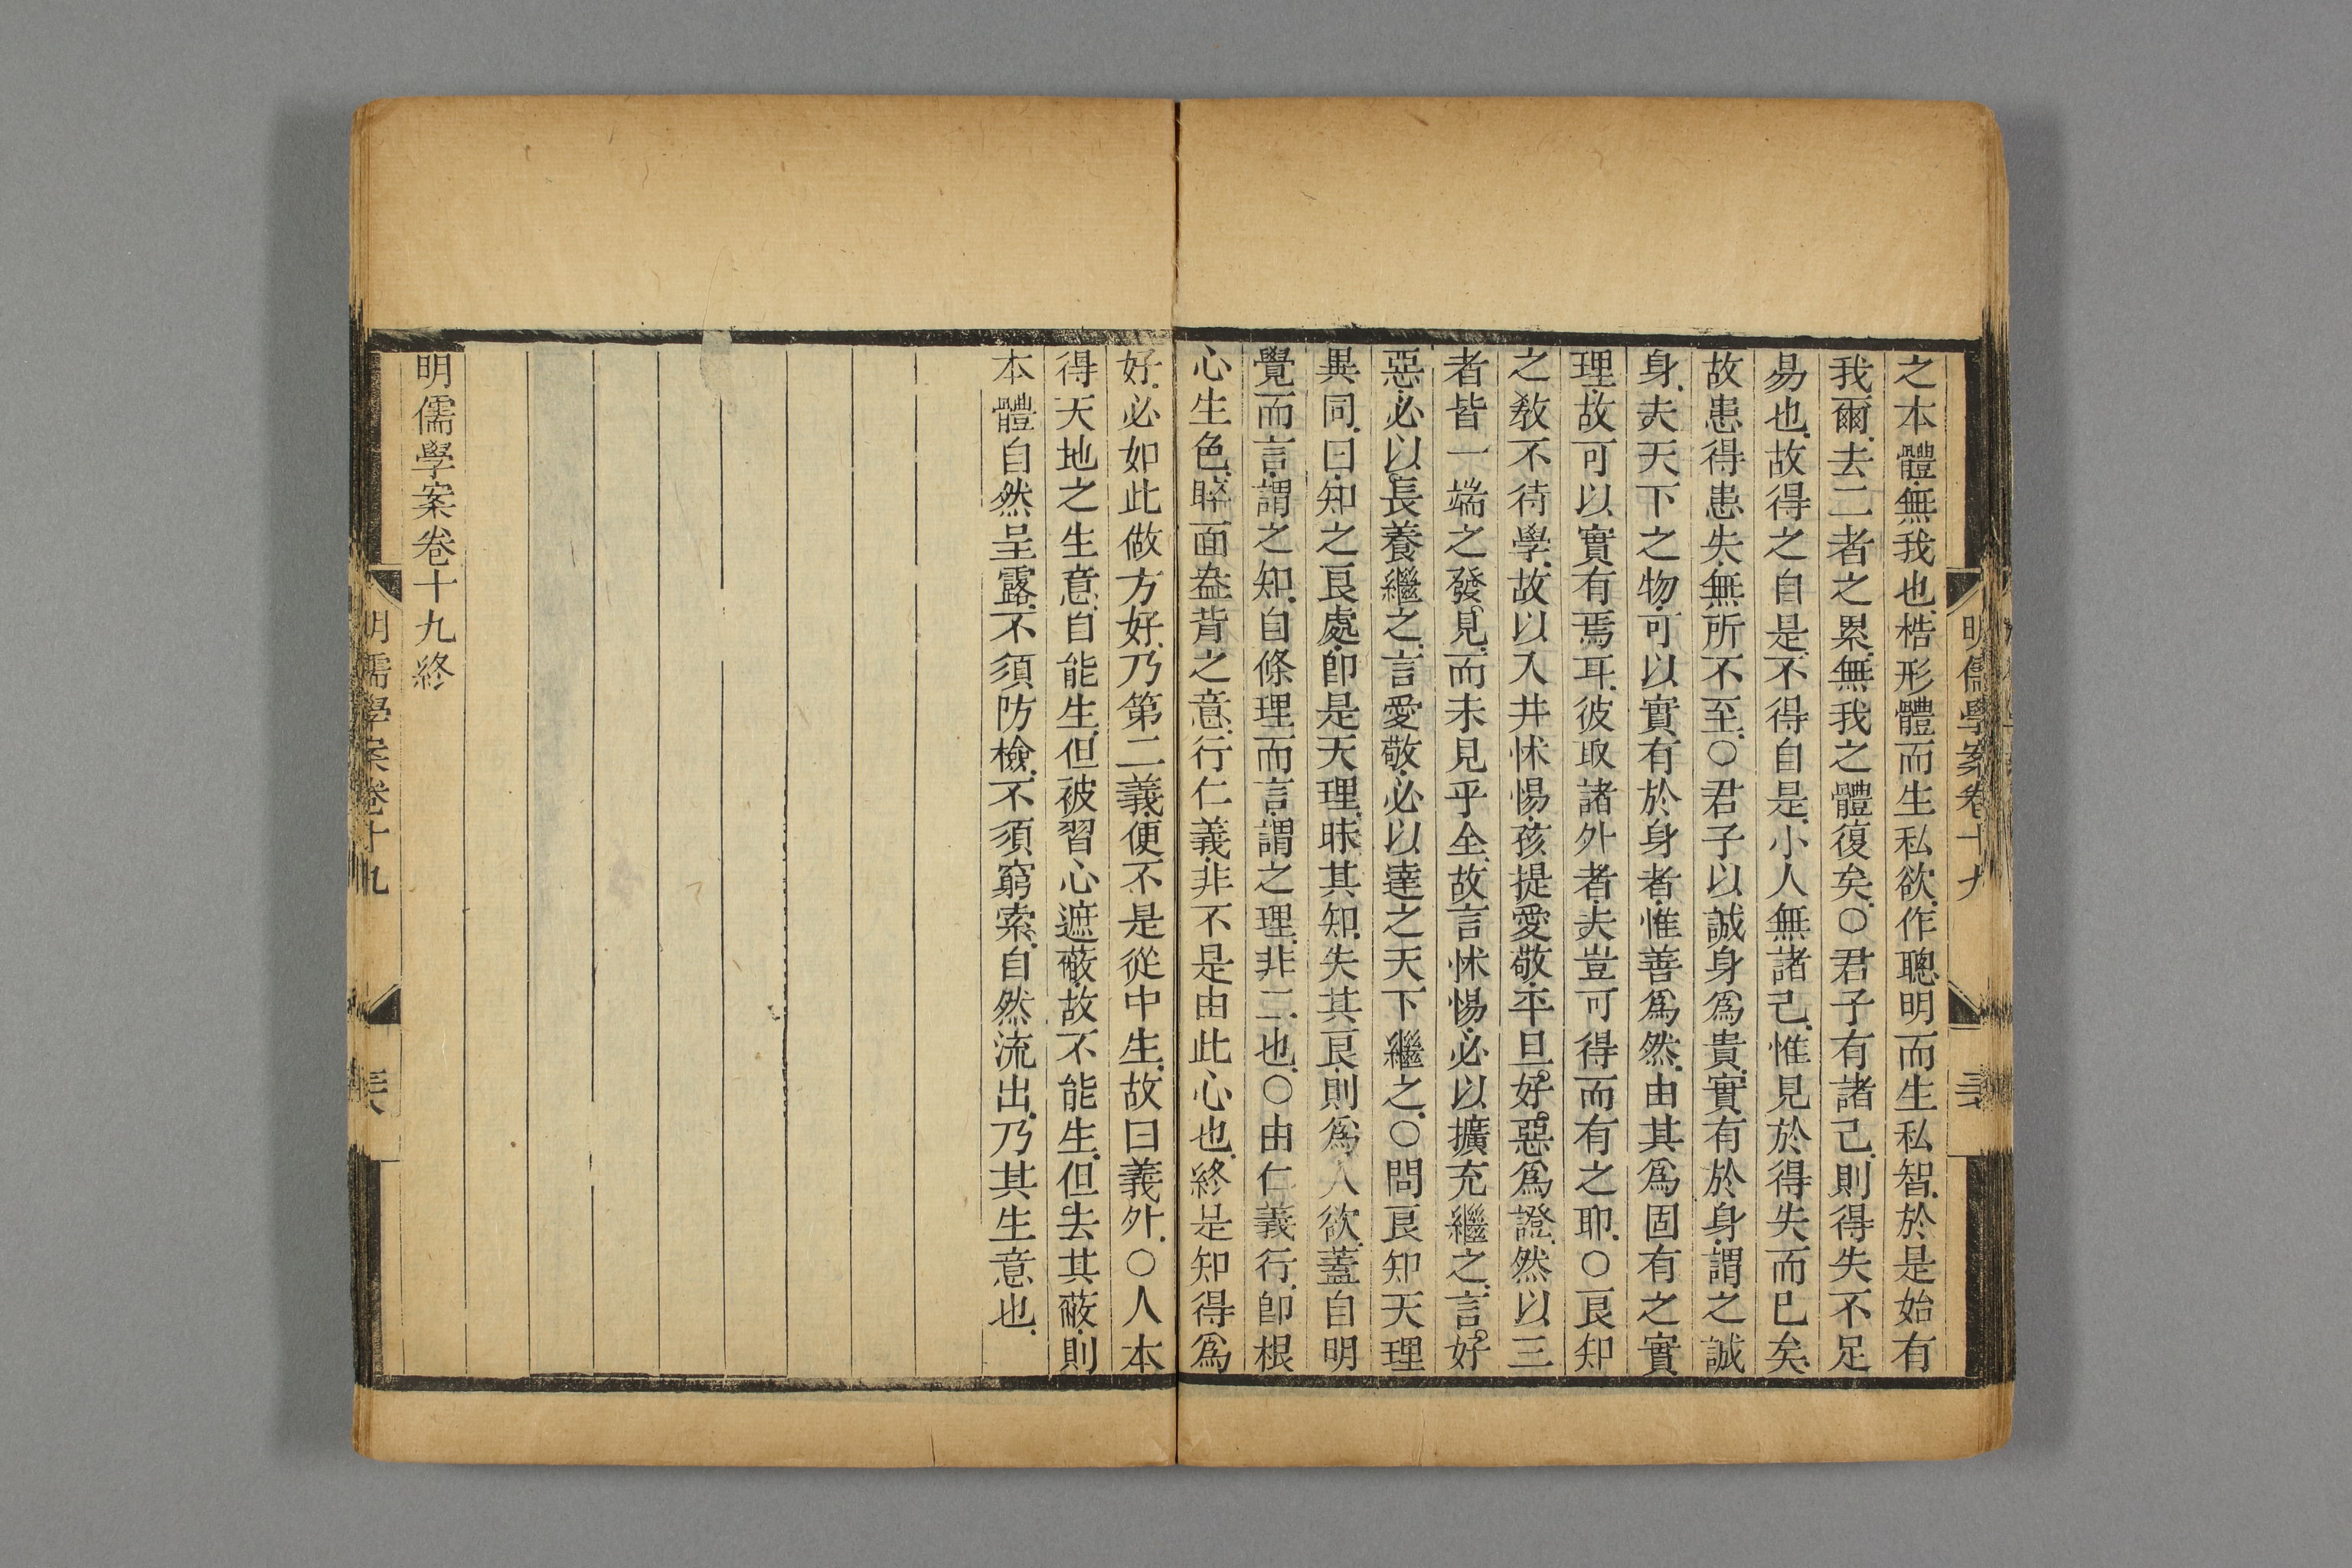 明儒學案卷十九
之本體無我也梏形體而生私欲作聰明而生私智於是始有
我爾去二者之累無我之體復矣○君子有諸己則得失不足
易也故得之自是不得自是小人無諸己惟見於得失而已矣
故患得患失無所不至○君子以誠身爲貴實有於身謂之誠
身夫天下之物可以實有於身者惟善爲然由其爲固有之實
理故可以實有焉耳彼取諸外者夫豈可得而有之耶○良知
之敎不待學故以入井怵惕孩提愛敬平旦好惡爲證然以三
者皆一端之發見而未見乎全故言怵惕必以擴充繼之言好
惡必以長養繼之言愛敬必以達之天下繼之○問良知天理
異同曰知之良處卽是天理昧其知失其良則爲人欲蓋自明
覺而言謂之知自條理而言謂之理非二也○由仁義行卽根
心生色睟面盎背之意行仁義非不是由此心也終是知得爲
好必如此做方好乃第二義便不是從中生故曰義外○人本
得天地之生意自能生但被習心遮蔽故不能生但去其蔽則
本體自然呈露不須防檢不須窮索自然流出乃其生意也
明儒學案卷十九終
明儒學案卷十九